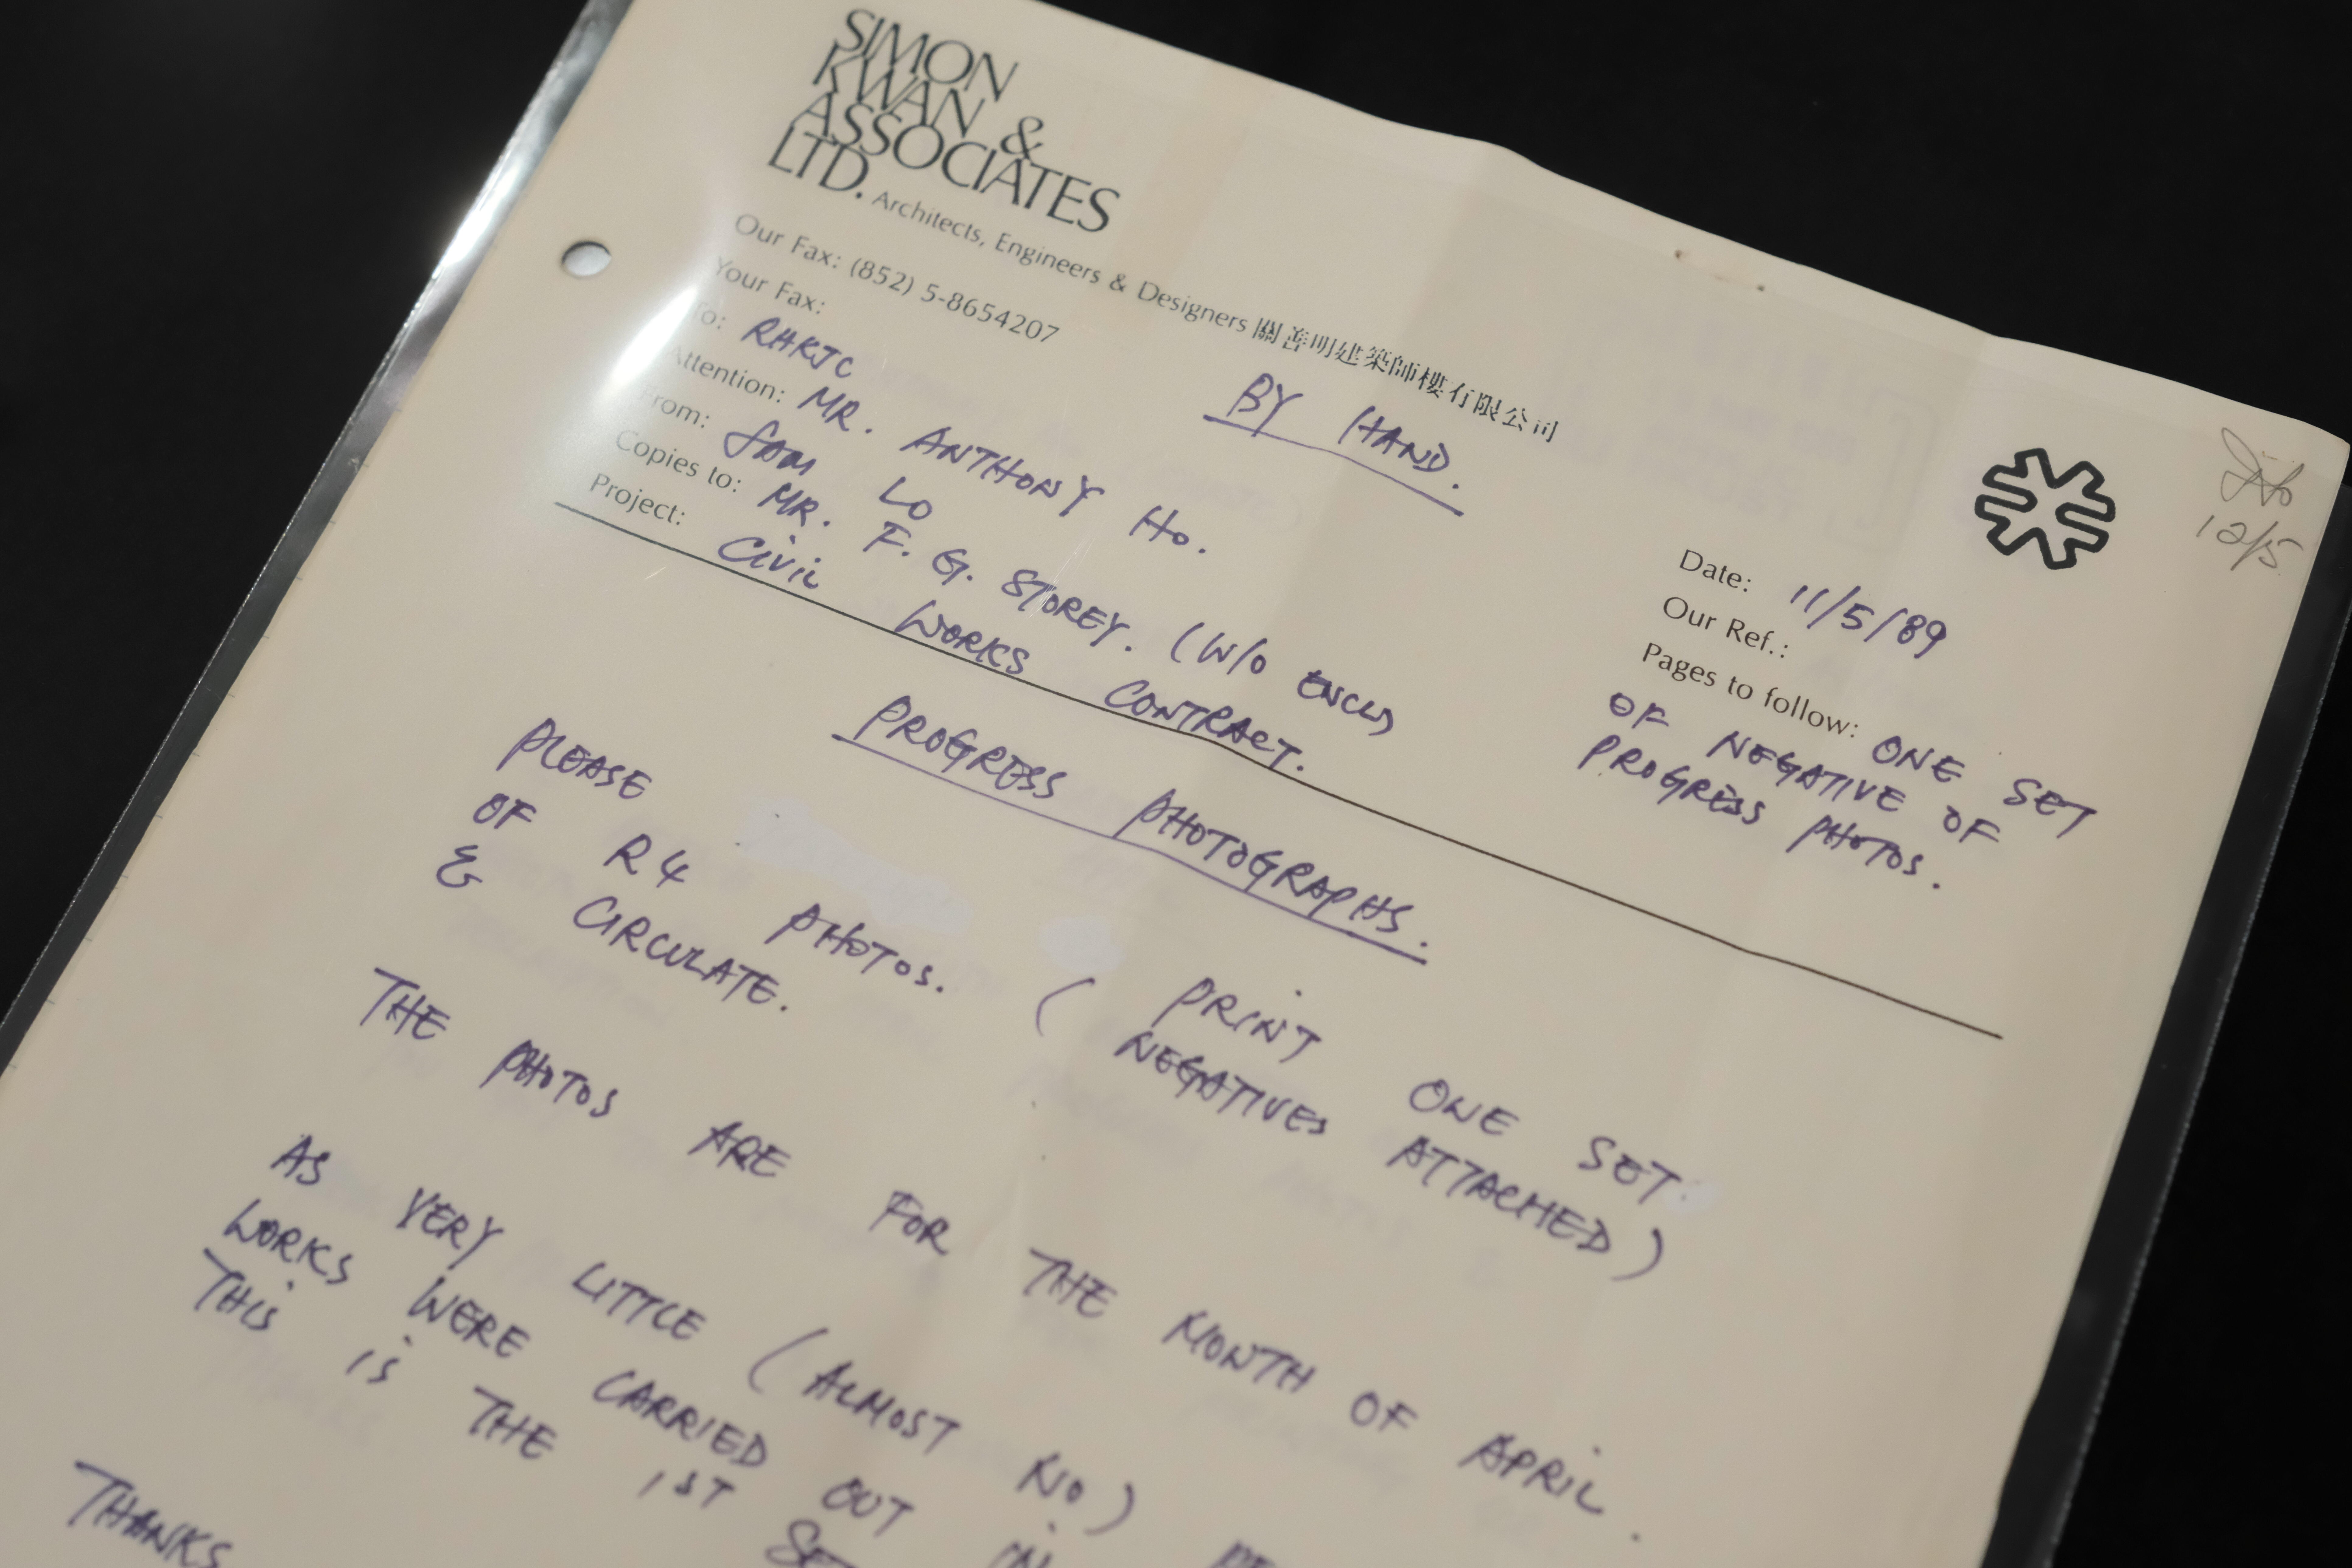 SIMON
KWAN &
ASSOCIATES
LTD. Architects, Engineers & Designers 關善明建築師樓有限公司
Our Fax: (852) 5-8654207
Your Fax:
BY HAND.
To: RHKJC
Attention: MR. ANTHONY HO.
From: SAM LO
Copies to: MR. F. G. STOREY. (W/O ENCLS)
Project: CIVIL WORKS CONTRACT.
12/5
Date: 11/5/89
Our Ref.:
Pages to follow: ONE SET
OF NEGATIVE OF
PROGRESS PHOTOS.
PROGRESS PHOTOGRAPHS.
PLEASE PRINT ONE SET
OF R4 PHOTOS. (NEGATIVES ATTACHED)
& CIRCULATE.
THE PHOTOS ARE FOR THE MONTH OF APRIL.
AS VERY LITTLE (ALMOST NO)
WORKS WERE CARRIED OUT IN
THIS IS THE 1ST SET
THANKS